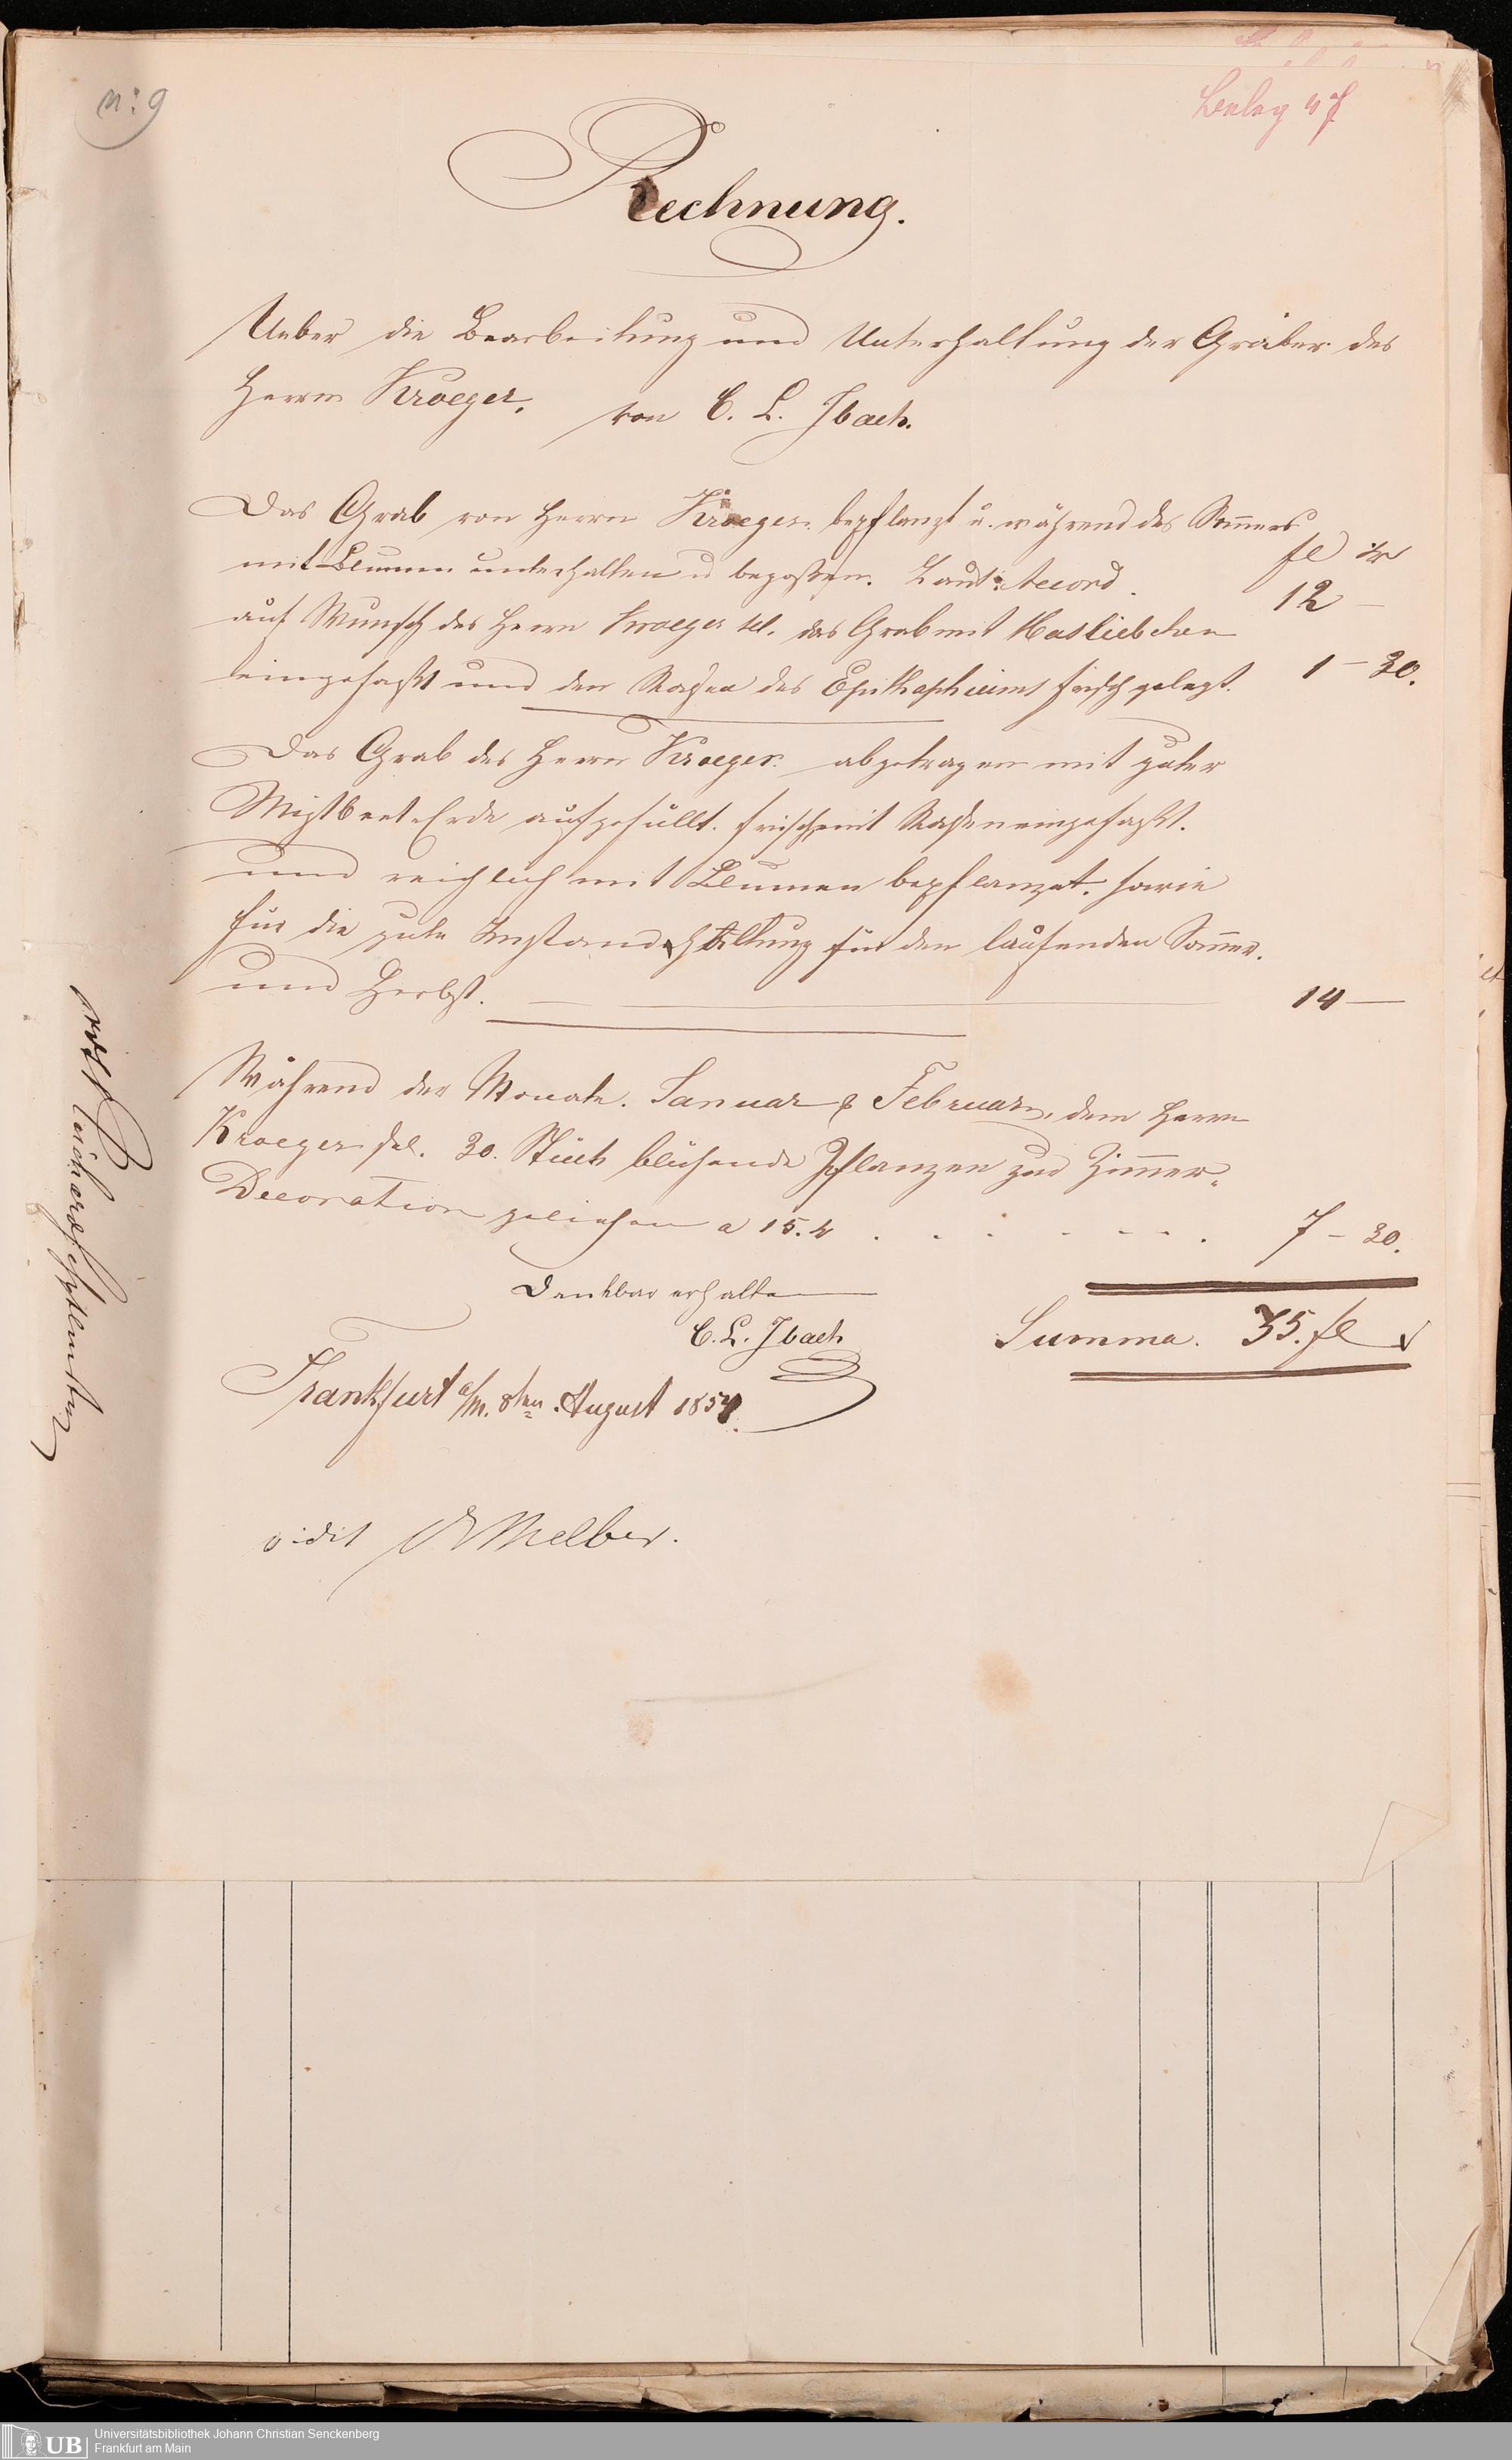 n: 9
Beleg 47
Rechnung.
Ueber die Bearbeitung und Unterhaltung der Gräber des
Herrn Kroeger. von C. L. Ibach.
Das Grab von Herrn Kroeger bepflanzt u. während des Som̄ers
fl xr
mit Blumen unterhalten u begoßen. Laut Accord. 12 –
auf Wunsch des Herrn Kroeger sel. das Grab mit Masliebchen
eingefaßt und den Rasen des Epithaphiums frisch gelegt. 1 – 30.
Das Grab des Herrn Kroeger abgetragen mit guter
Mistbeet-Erde aufgefüllt. frisch mit Rasen eingefaßt.
und reichlich mit Blumen bepflanzt. sowie
für die gute Instandhaltung für den laufenden Som̄er.
und Herbst. 14 —
Während der Monate. Januar & Februar, dem Herrn
Kroeger sel. 30. Stück blühende Pflanzen zur Zim̄er-
Decoration geliehen a 15. . . . . - - - . 7 – 30.
Dankbar erhalten
C. L. Ibach
Summa. 35. fl
Frankfurt a/m. 8ten August 1854.
vidit Melber.
UB
Universitätsbibliothek Johann Christian Senckenberg
Frankfurt am Main